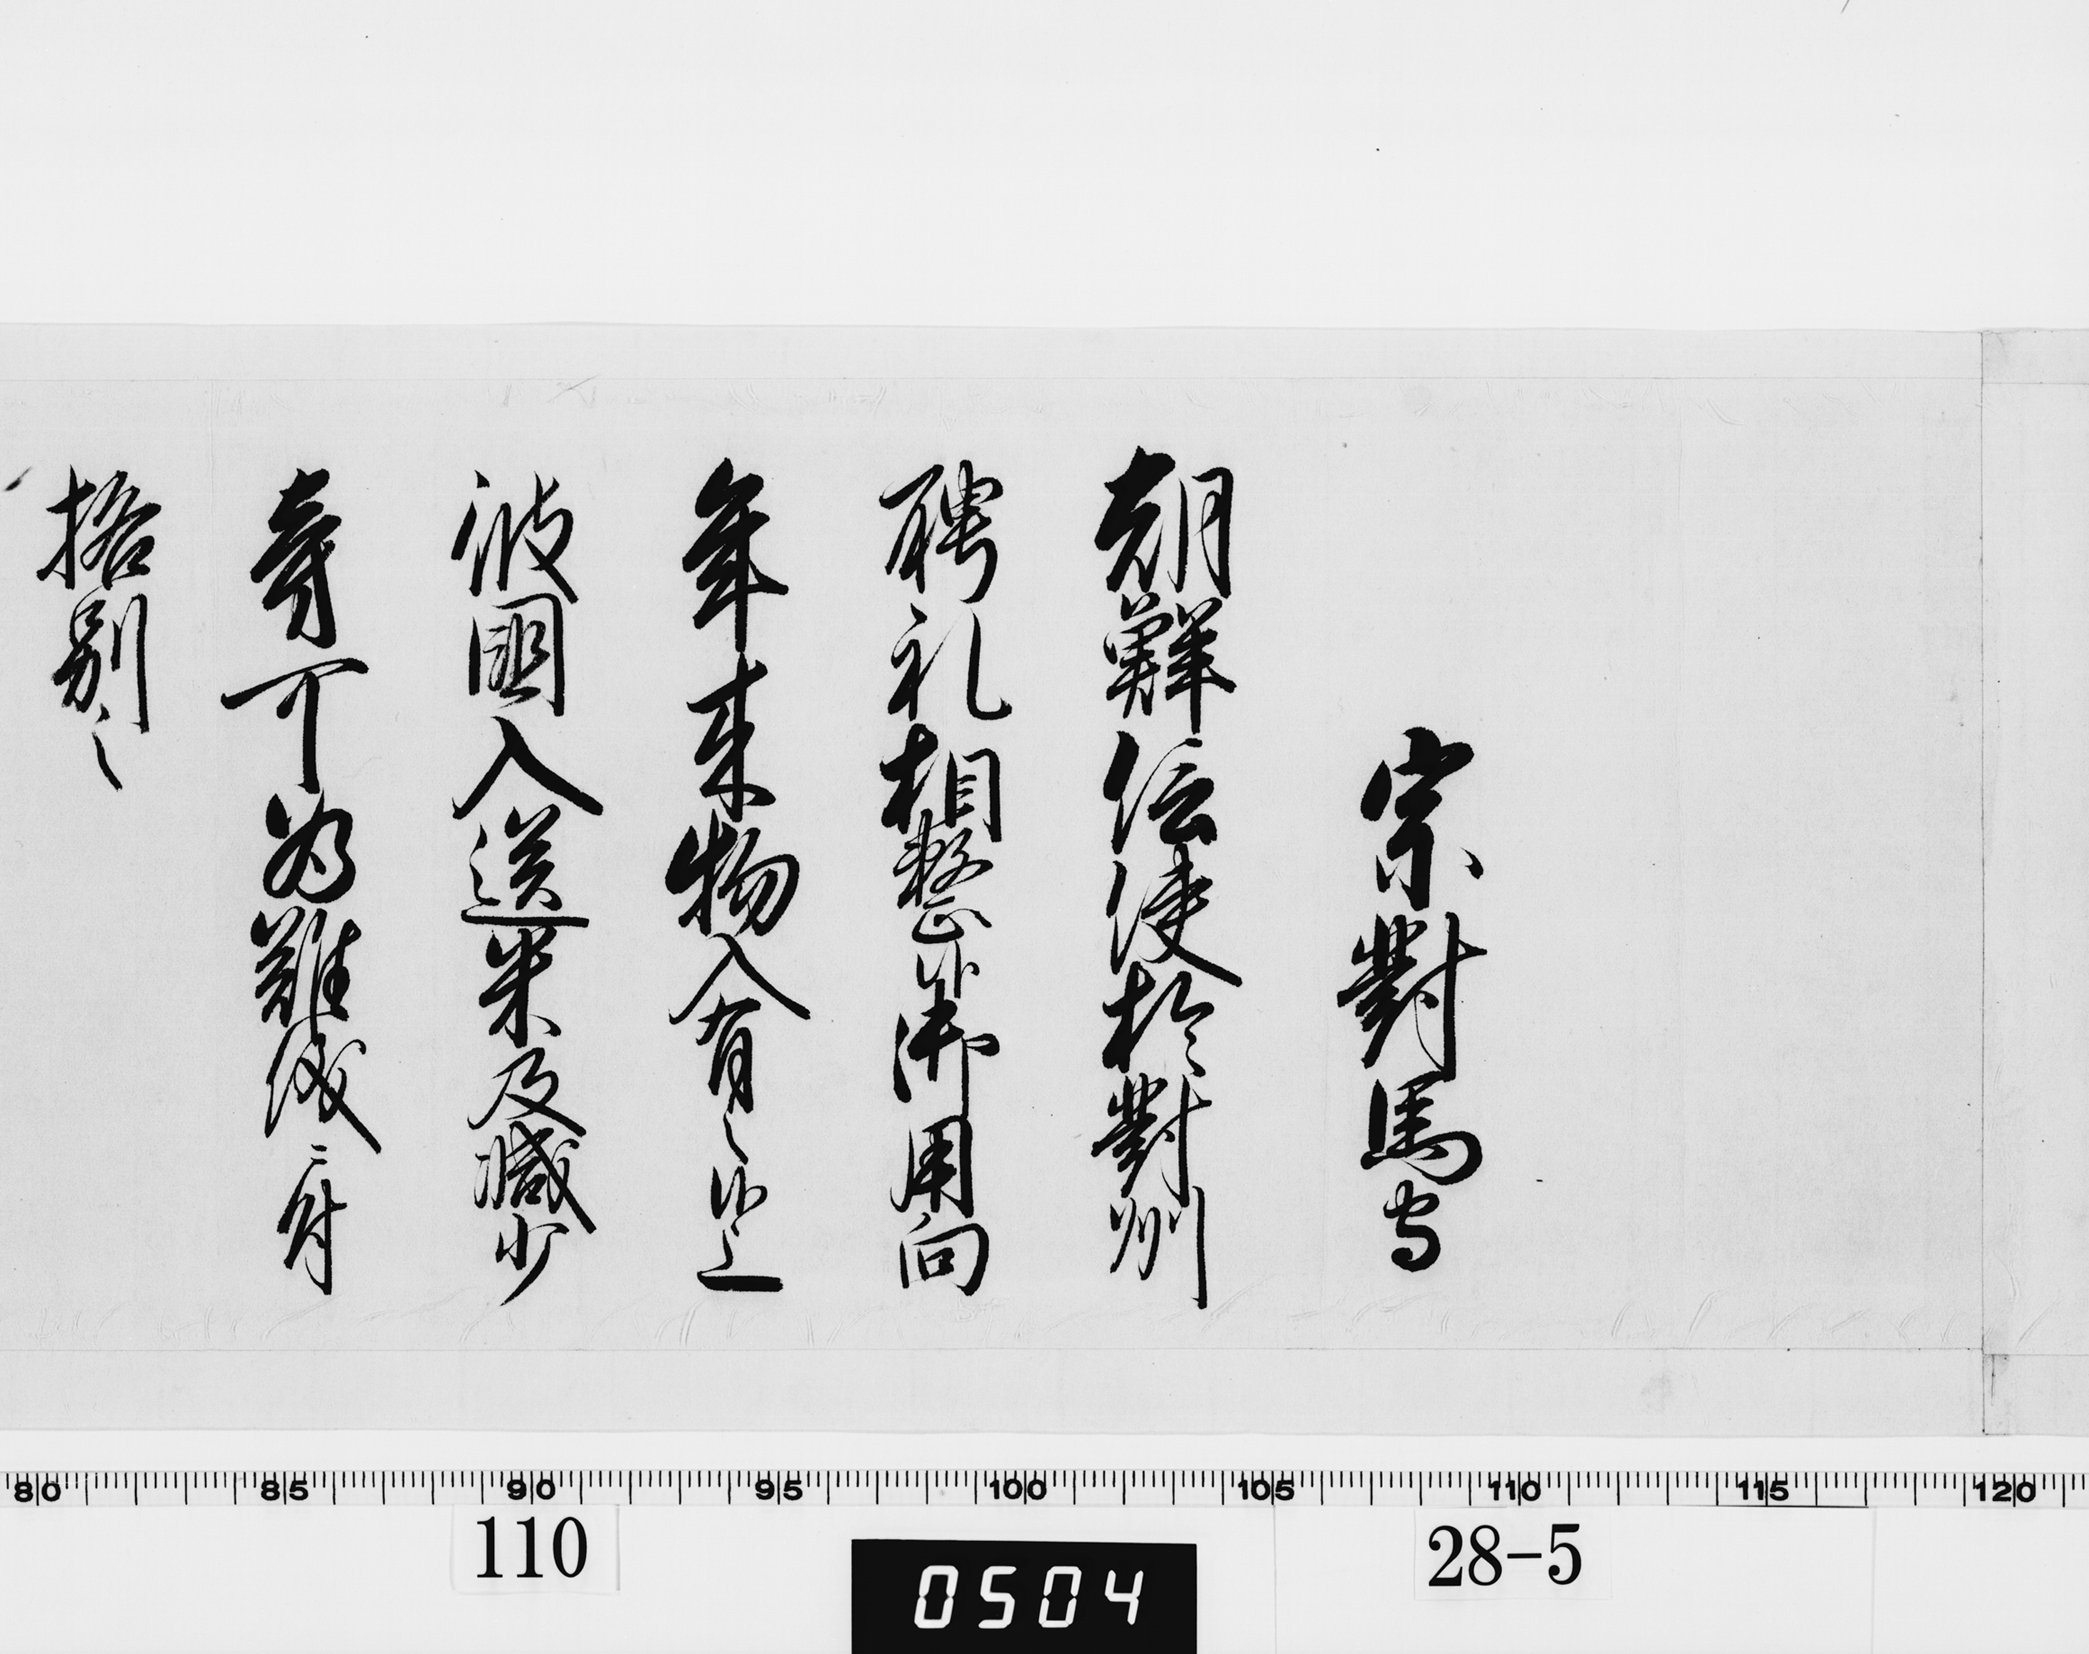 宗對馬守
朝鮮信使於對州
聘礼相整候御用向
年来物入有之候上
彼国入送米及減少
旁可為難儀ニ付
格別之
80 85 90 95 100 105 110 115 120
110
0504
28-5